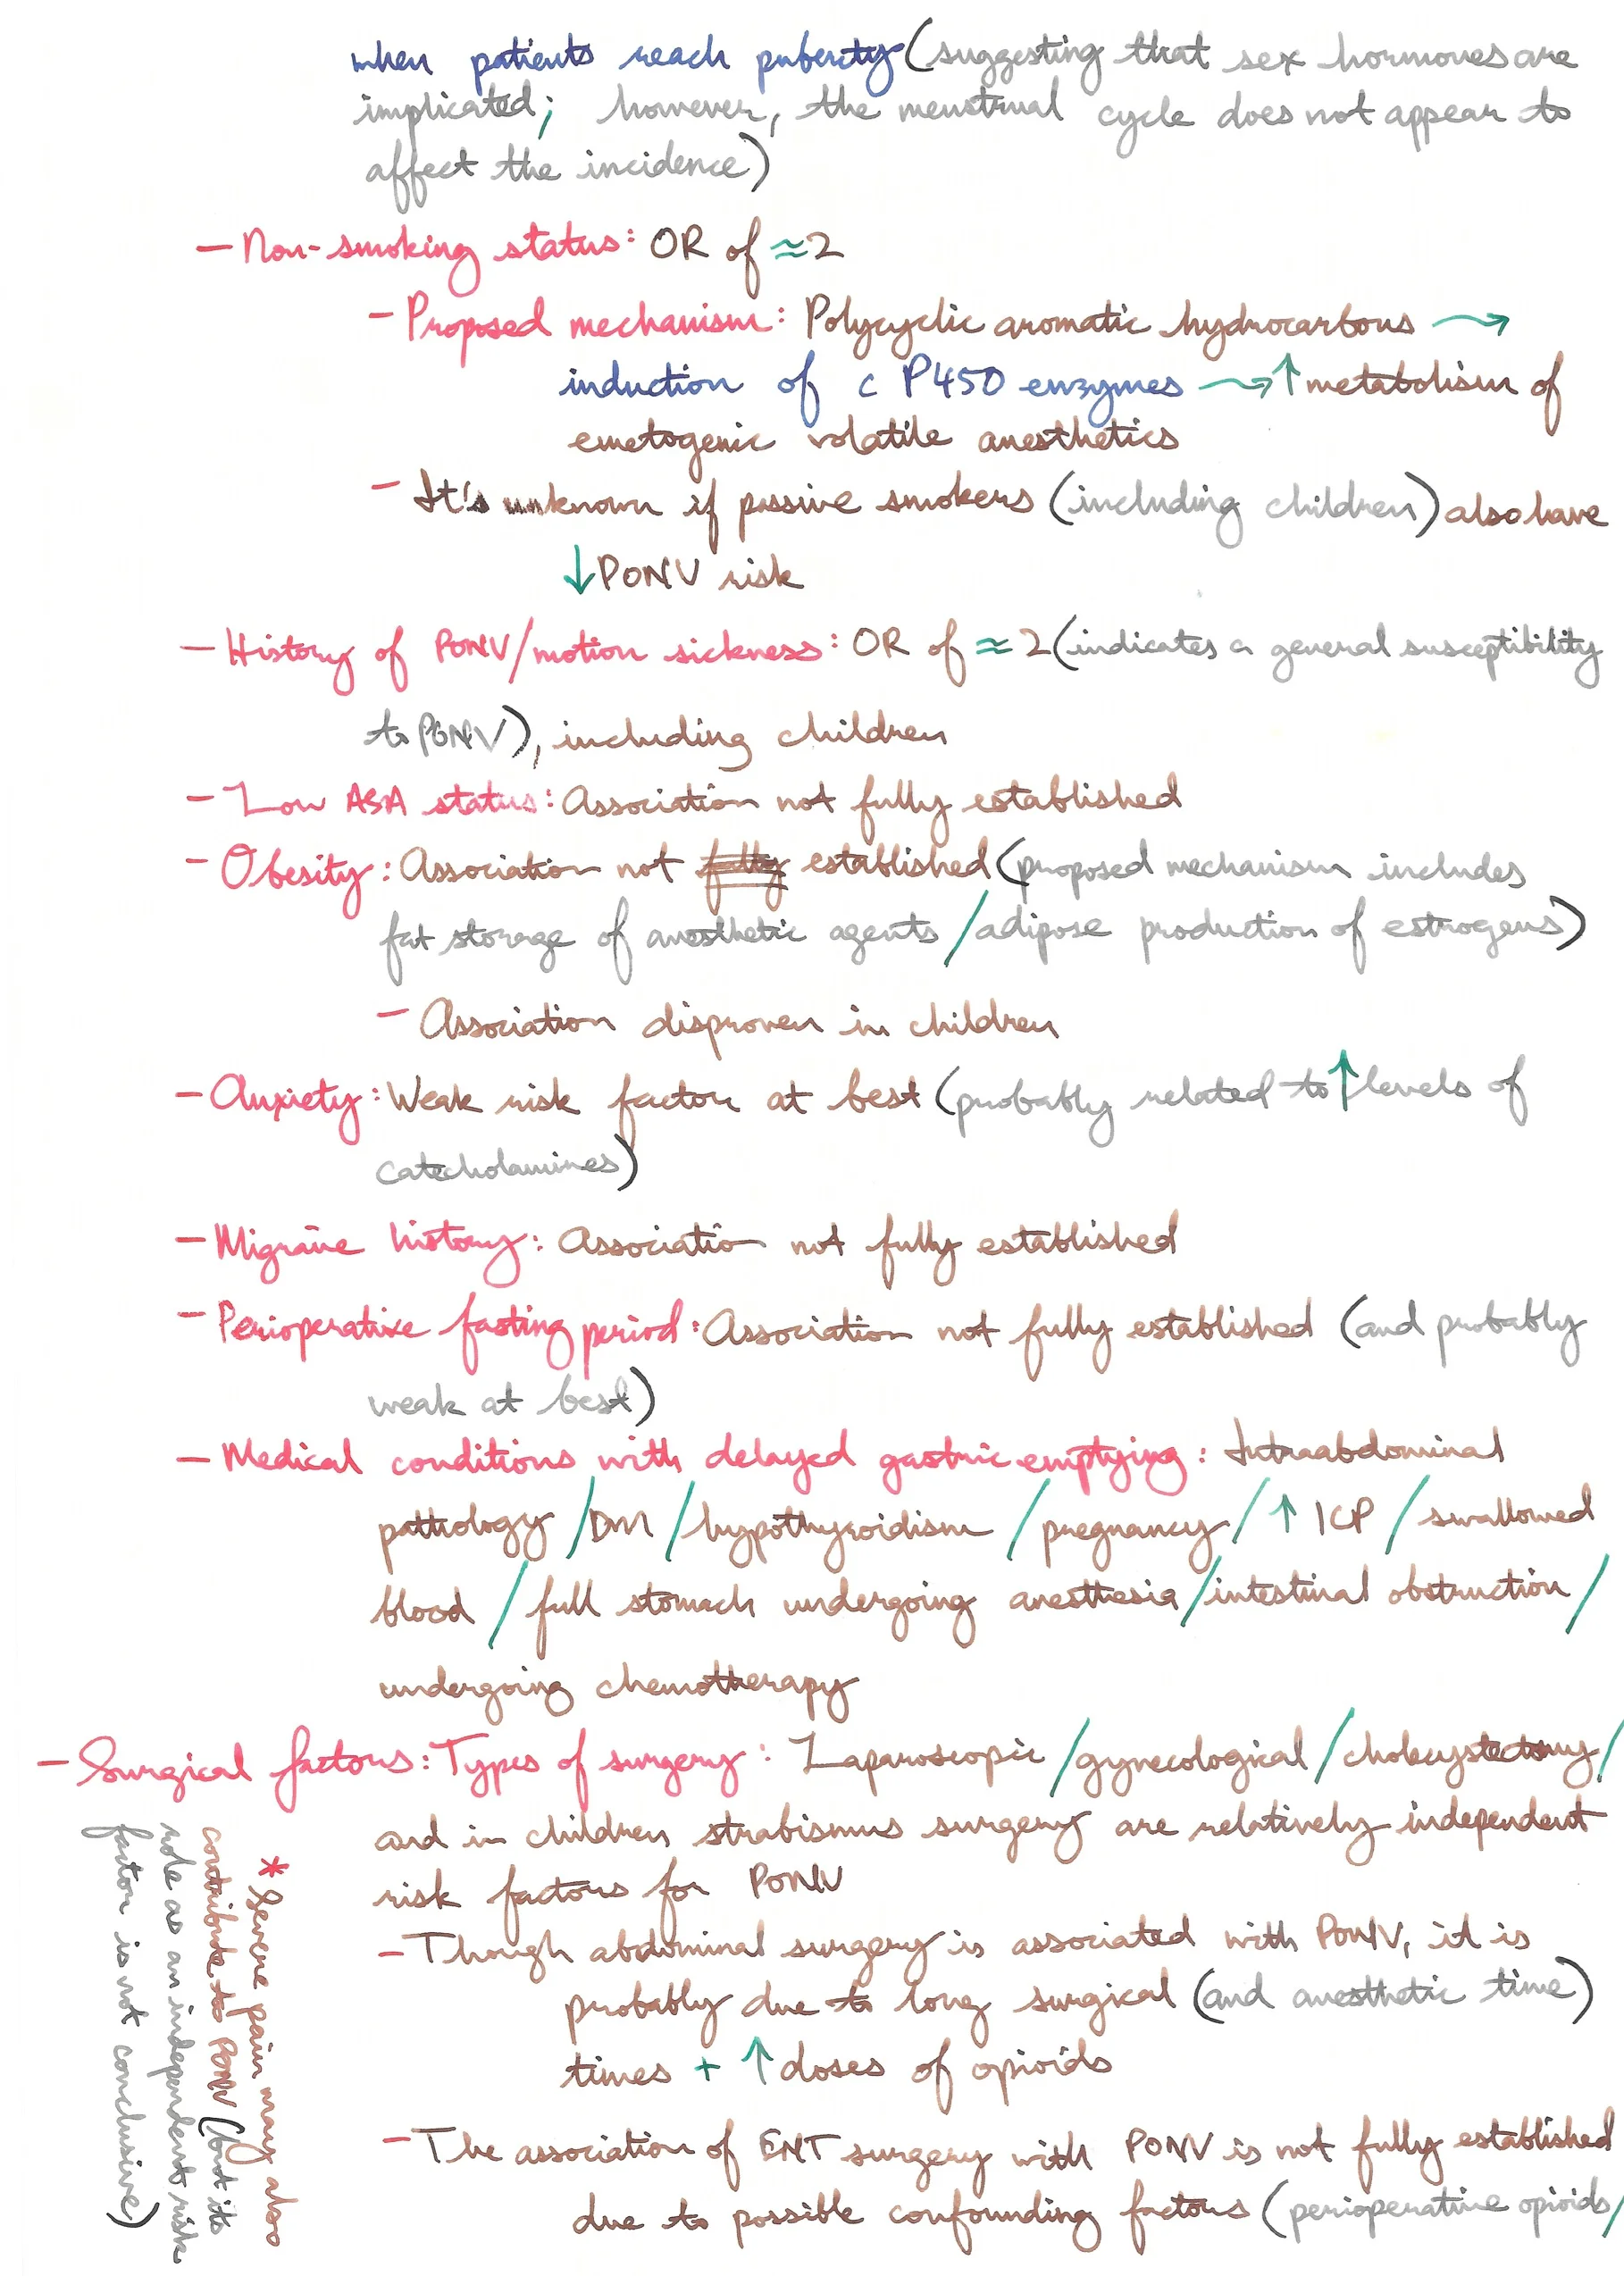 when patients reach puberty (suggesting that sex hormones are
implicated; however, the menstrual cycle does not appear to
affect the incidence)
- Non-smoking status: OR of ≈2
- Proposed mechanism: Polycyclic aromatic hydrocarbons →
induction of c P450 enzymes → ↑ metabolism of
emetogenic volatile anesthetics
- It's unknown if passive smokers (including children) also have
↓ PONV risk
- History of PONV/motion sickness: OR of ≈ 2 (indicates a general susceptibility
to PONV), including children
- Low ASA status: Association not fully established
- Obesity: Association not fully established (proposed mechanism includes
fat storage of anesthetic agents / adipose production of estrogens)
- Association disproven in children
- Anxiety: Weak risk factor at best (probably related to ↑ levels of
catecholamines)
- Migraine history: Association not fully established
- Perioperative fasting period: Association not fully established (and probably
weak at best)
- Medical conditions with delayed gastric emptying: Intraabdominal
pathology / DM / hypothyroidism / pregnancy / ↑ ICP / swallowed
blood / full stomach undergoing anesthesia / intestinal obstruction /
undergoing chemotherapy
- Surgical factors: Types of surgery: Laparoscopic / gynecological / cholecystectomy /
and in children strabismus surgery are relatively independent
risk factors for PONV
- Though abdominal surgery is associated with PONV, it is
probably due to long surgical (and anesthetic time)
times + ↑ doses of opioids
- The association of ENT surgery with PONV is not fully established
due to possible confounding factors (perioperative opioids /
* Severe pain may also
contribute to PONV (but its
role as an independent risk
factor is not conclusive)